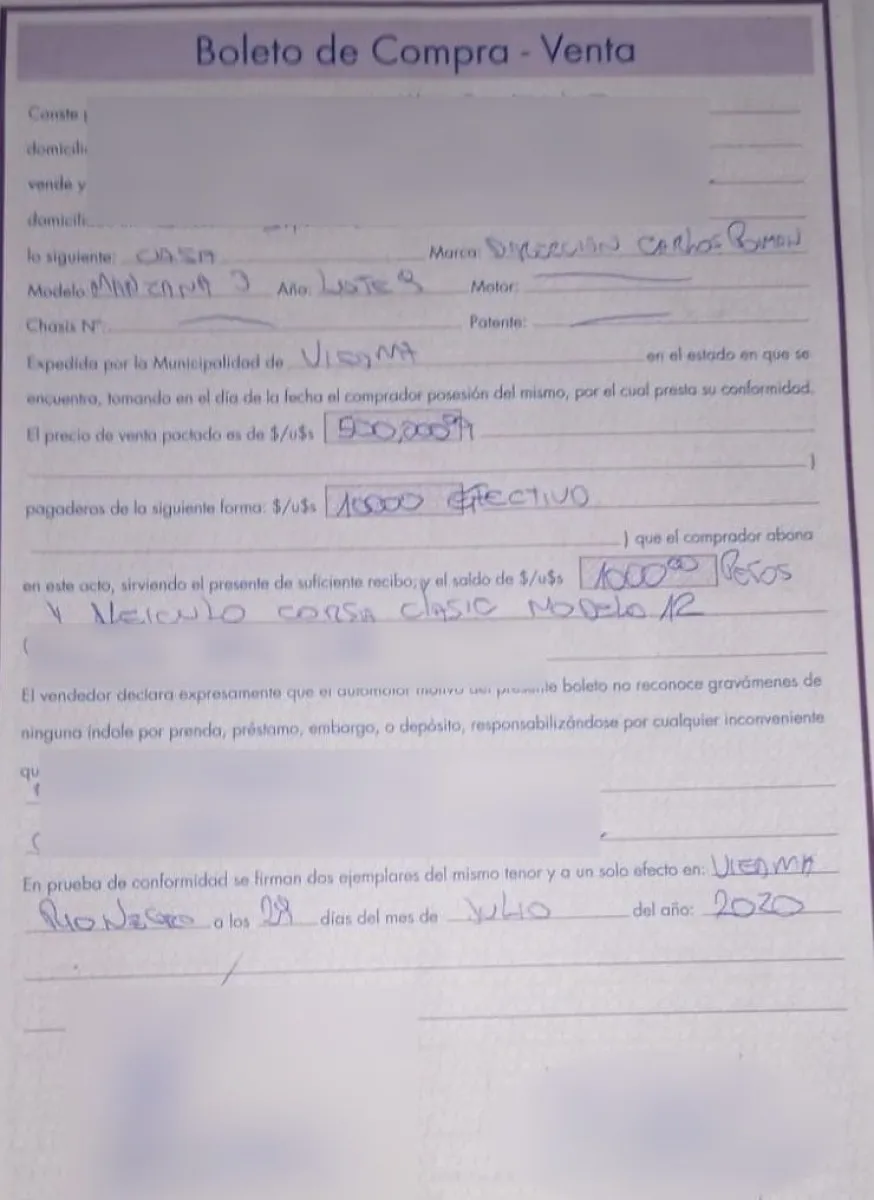 Boleto de Compra - Venta
Conste
domicili
vende y
domicili
lo siguiente: CASA Marca: DIRECCIÓN CARLOS ROMAN
Modelo MANZANA 3 Año: LOTE 9 Motor:
Chasis Nº: Patente:
Expedida por la Municipalidad de VIEDMA en el estado en que se
encuentra, tomando en el día de la fecha el comprador posesión del mismo, por el cual presta su conformidad.
El precio de venta pactado es de $/u$s 500,000
)
pagaderos de la siguiente forma: $/u$s 10000 EFECTIVO
) que el comprador abona
en este acto, sirviendo el presente de suficiente recibo; y el saldo de $/u$s 1000 00 PESOS
Y VEICULO CORSA CLASIC MODELO 12
(
El vendedor declara expresamente que el automotor motivo del presente boleto no reconoce gravámenes de
ninguna índole por prenda, préstamo, embargo, o depósito, responsabilizándose por cualquier inconveniente
qu
En prueba de conformidad se firman dos ejemplares del mismo tenor y a un solo efecto en: VIEDMA
RIO NEGRO a los días del mes de JULIO del año: 2020